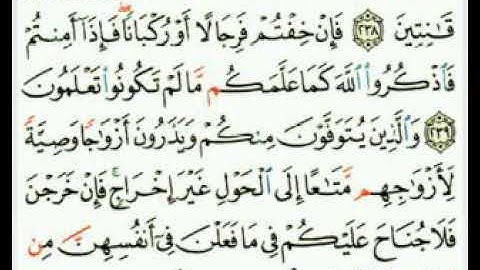 قَـٰنِتِينَ ﴿٢٣٨﴾ فَإِنْ خِفْتُمْ فَرِجَالًا أَوْ رُكْبَانًا ۖ فَإِذَآ أَمِنتُمْ
فَٱذْكُرُوا۟ ٱللَّهَ كَمَا عَلَّمَكُم مَّا لَمْ تَكُونُوا۟ تَعْلَمُونَ
﴿٢٣٩﴾ وَٱلَّذِينَ يُتَوَفَّوْنَ مِنكُمْ وَيَذَرُونَ أَزْوَٰجًا وَصِيَّةً
لِّأَزْوَٰجِهِم مَّتَـٰعًا إِلَى ٱلْحَوْلِ غَيْرَ إِخْرَاجٍ ۚ فَإِنْ خَرَجْنَ
فَلَا جُنَاحَ عَلَيْكُمْ فِى مَا فَعَلْنَ فِىٓ أَنفُسِهِنَّ مِن